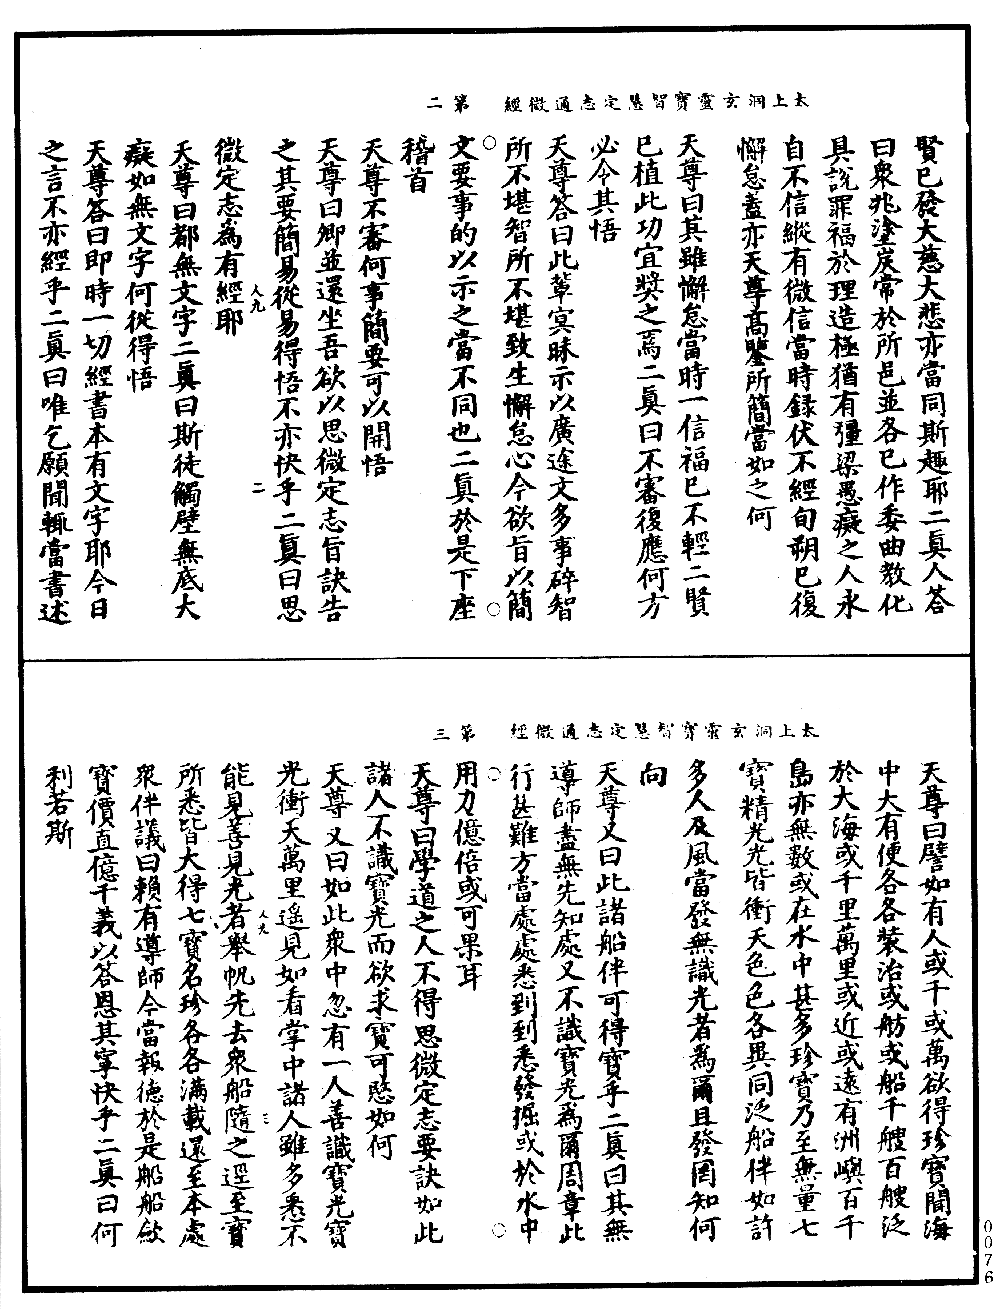 太上洞玄靈寶智慧定志通微經　第二
賢已發大慈大悲亦當同斯趣耶二真人答
曰衆兆塗炭常於所邑並各已作委曲教化
具說罪福於理造極猶有彊梁愚癡之人永
自不信縱有微信當時録伏不經旬朔已復
懈怠蓋亦天尊高鑒所簡當如之何
天尊曰其雖懈怠當時一信福已不輕二賢
已植此功宜獎之焉二真曰不審復應何方
必令其悟
天尊答曰此輩冥昧示以廣途文多事碎智
所不堪智所不堪致生懈怠心今欲旨以簡
文要事的以示之當不同也二真於是下座
稽首
天尊不審何事簡要可以開悟
天尊曰卿並還坐吾欲以思微定志旨訣告
之其要簡易從易得悟不亦快乎二真曰思
微定志為有經耶
天尊曰都無文字二真曰斯徒觸壁無底大
癡如無文字何從得悟
天尊答曰即時一切經書本有文字耶今日
之言不亦經乎二真曰唯乞願聞輒當書述
人九
二
太上洞玄靈寶智慧定志通微經　第三
天尊曰譬如有人或千或萬欲得珍寶聞海
中大有便各各裝治或舫或船千艘百艘泛
於大海或千里萬里或近或遠有洲嶼百千
島亦無數或在水中甚多珍寶乃至無量七
寶精光光皆衝天色色各異同泛船伴如許
多人及風當發無識光者為爾且發罔知何
向
天尊又曰此諸船伴可得寶乎二真曰其無
導師盡無先知處又不識寶光為爾周章此
行甚難方當處處悉到到悉發掘或於水中
用力億倍或可果耳
天尊曰學道之人不得思微定志要訣如此
諸人不識寶光而欲求寶可愍如何
天尊又曰如此衆中忽有一人善識寶光寶
光衝天萬里遥見如看掌中諸人雖多悉不
能見善見光者舉帆先去衆船隨之逕至寶
所悉皆大得七寶名珍各各滿載還至本處
衆伴議曰賴有導師今當報德於是船船斂
寶價直億千義以答恩其寧快乎二真曰何
利若斯
人九
三
0076